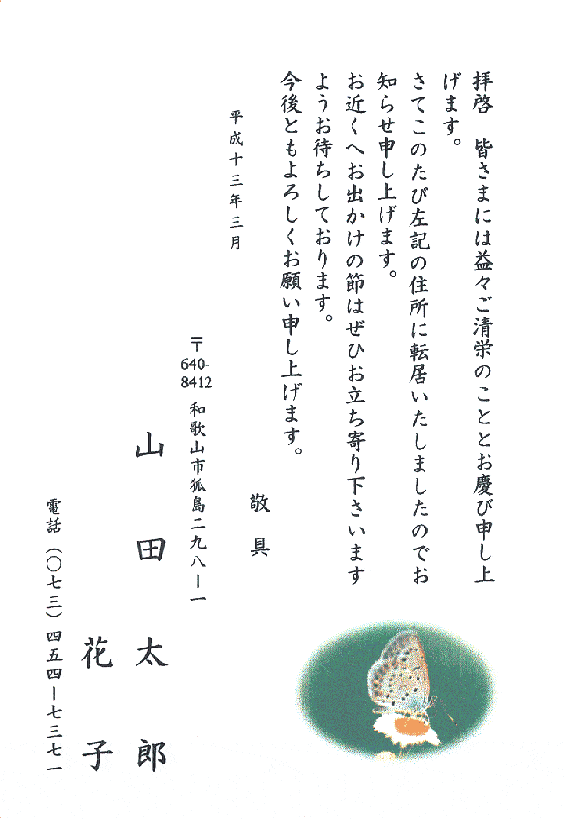 拝啓　皆さまには益々ご清栄のこととお慶び申し上
げます。
さてこのたび左記の住所に転居いたしましたのでお
知らせ申し上げます。
お近くへお出かけの節はぜひお立ち寄り下さいます
ようお待ちしております。
今後ともよろしくお願い申し上げます。
敬具
平成十三年三月
〒
640-
8412
和歌山市狐島二九八ー一
山田太郎
花子
電話（〇七三）四五四ー七三七一